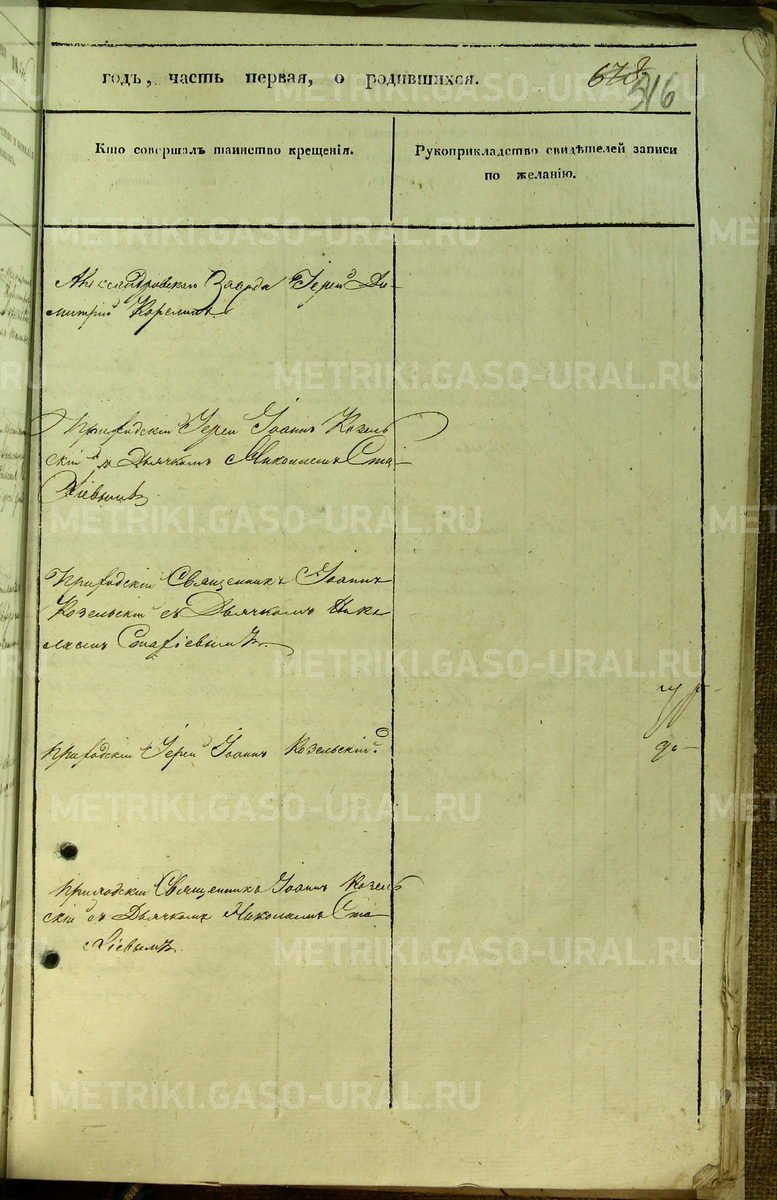 годъ, часть первая, о родившихся.
678
316
Кто совершалъ таинство крещенія.
Рукоприкладство свидѣтелей записи
по желанію.
Александровскаго Завода Іерей Ди-
митрій Корелинъ.
Приходскій Іерей Іоаннъ Козель
скій съ Дьячкомъ Николаемъ Ста
хіевымъ.
Приходскій Священникъ Іоаннъ
Козельскій съ Дьячкомъ Нико
лаемъ Стахіевымъ.
Приходскій Іерей Іоаннъ Козельскій.
Приходскій Священникъ Іоаннъ Козель
скій съ Дьячкомъ Николаемъ Ста
хіевымъ.
METRIKI.GASO-URAL.RU